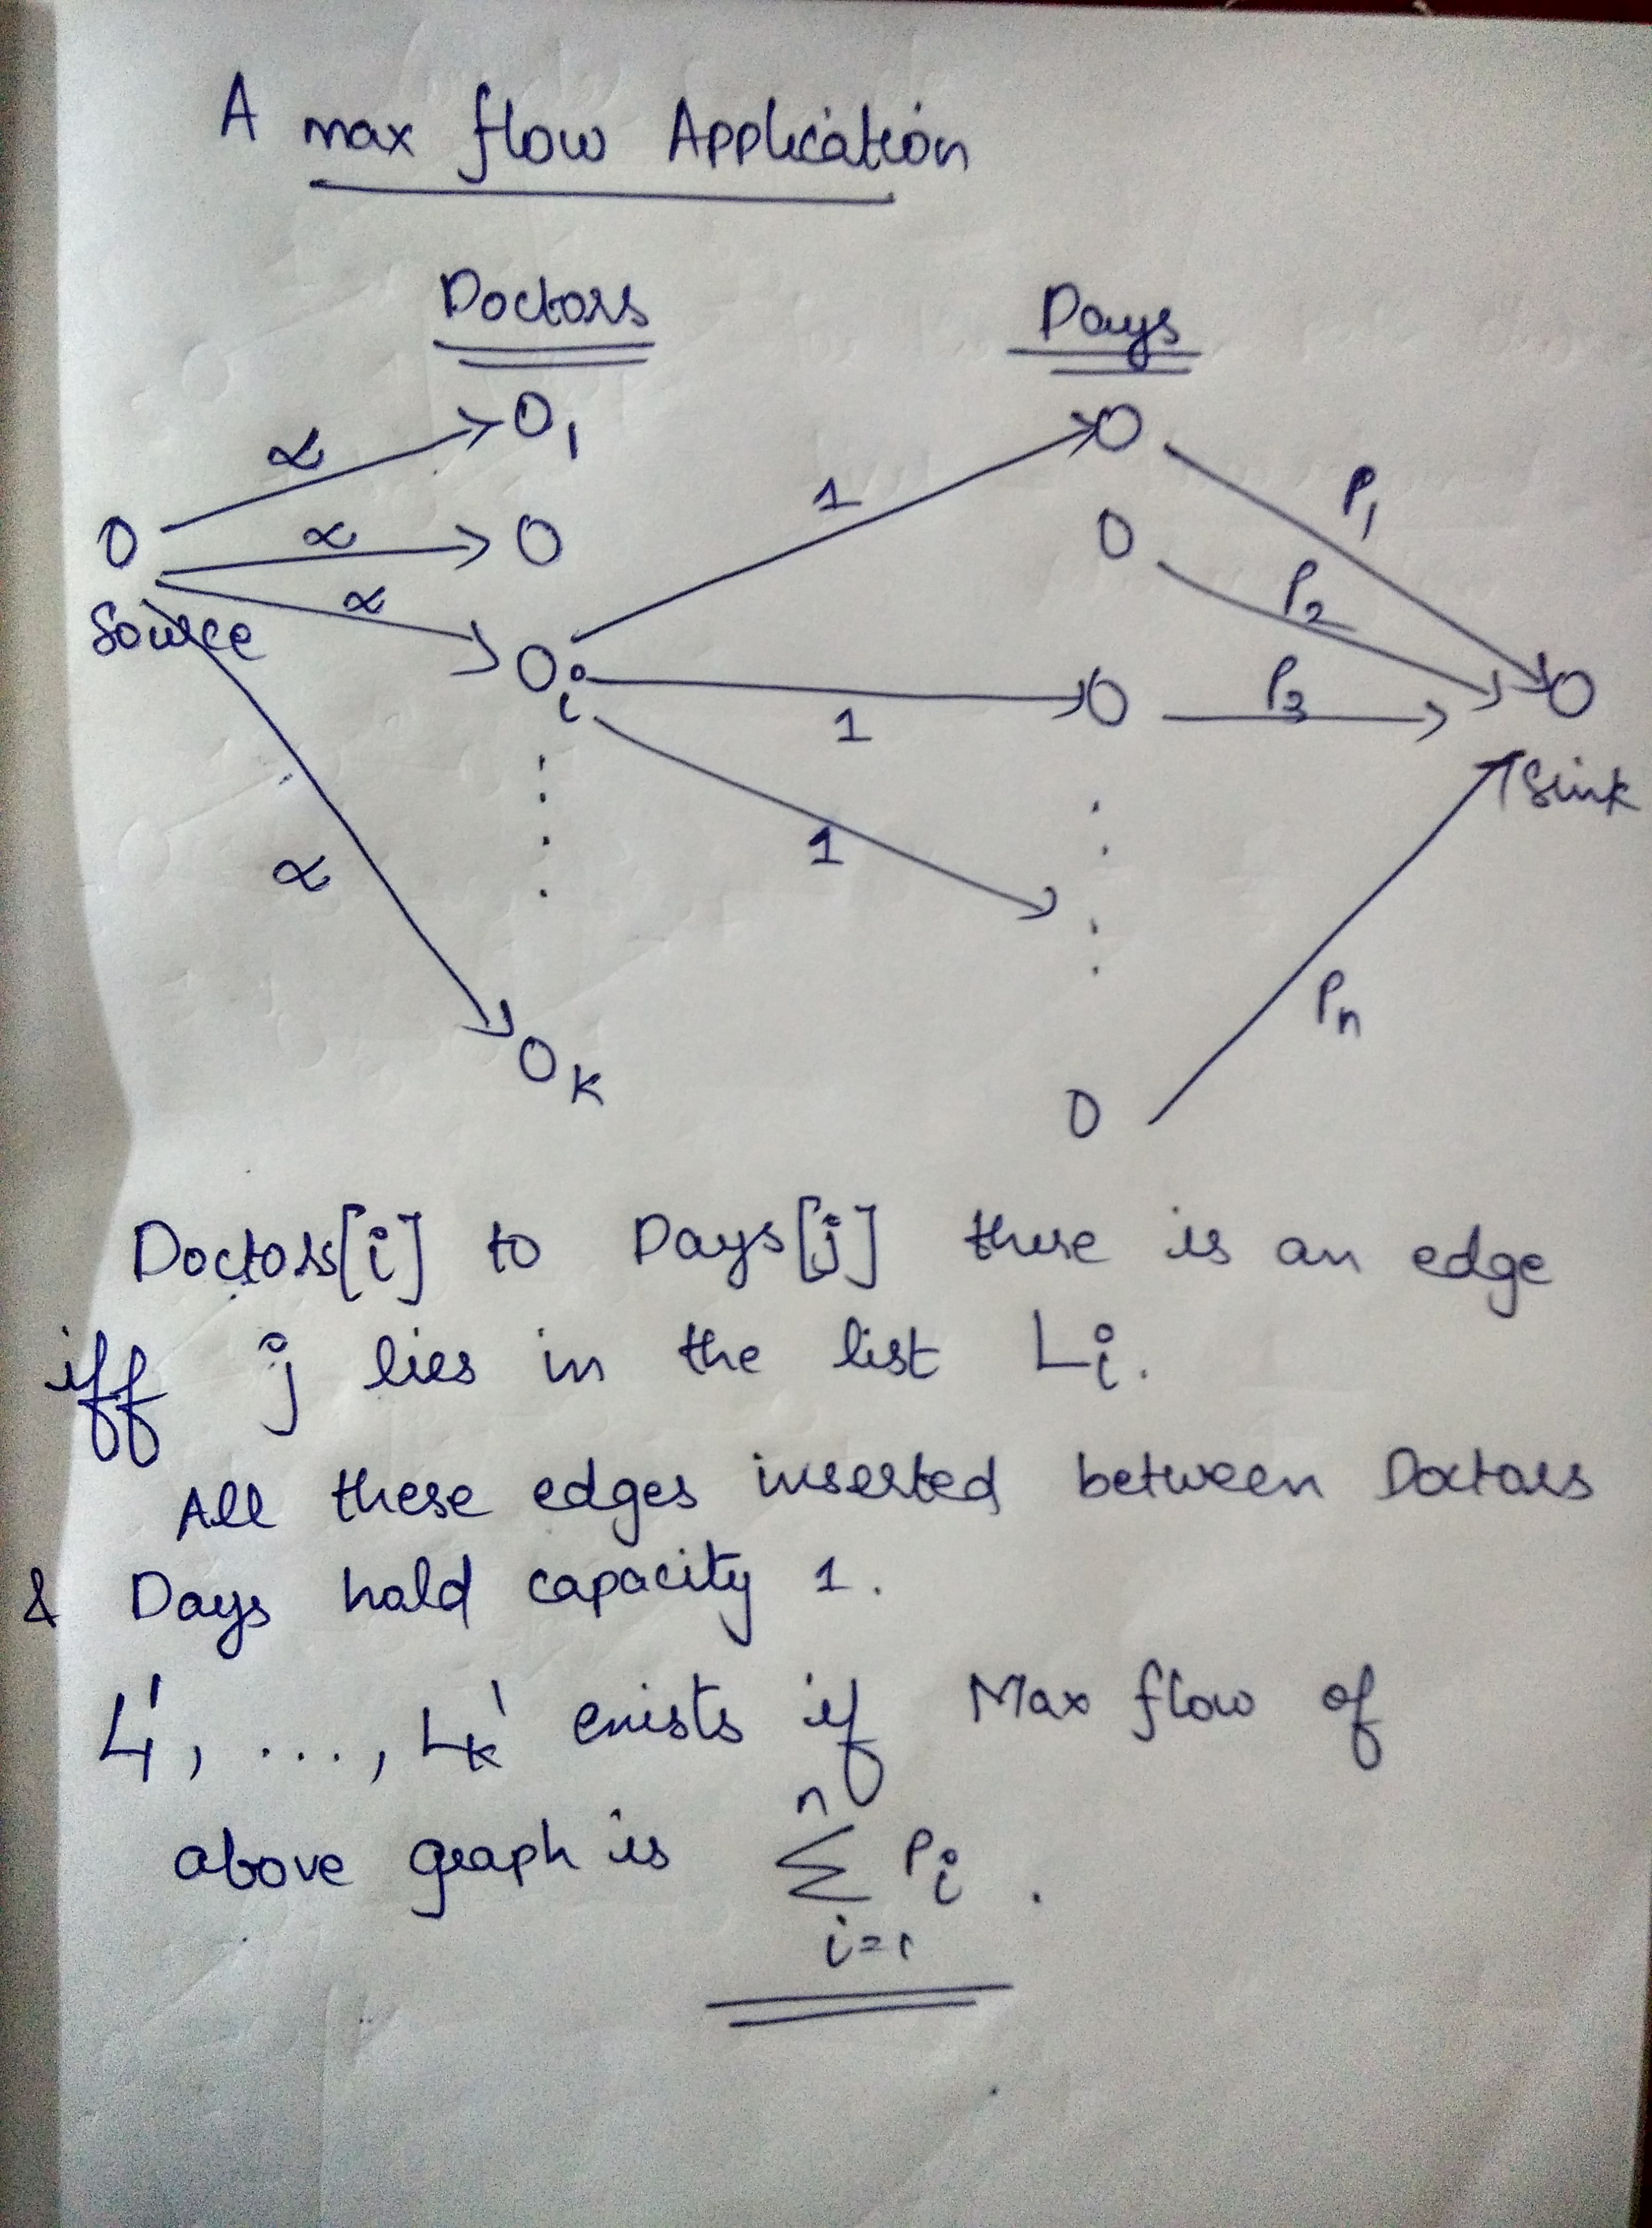 A max flow Application
Doctors Days
α O1 1 O P1
O α O O P2
Source α Oi 1 O P3 O
Sink
1
α
Pn
OK
O
Doctors[i] to Days[j] there is an edge
iff j lies in the list Li.
All these edges inserted between Doctors
& Days hold capacity 1.
L1', ..., Lk' exists if Max flow of
above graph is n∑i=1 Pi.